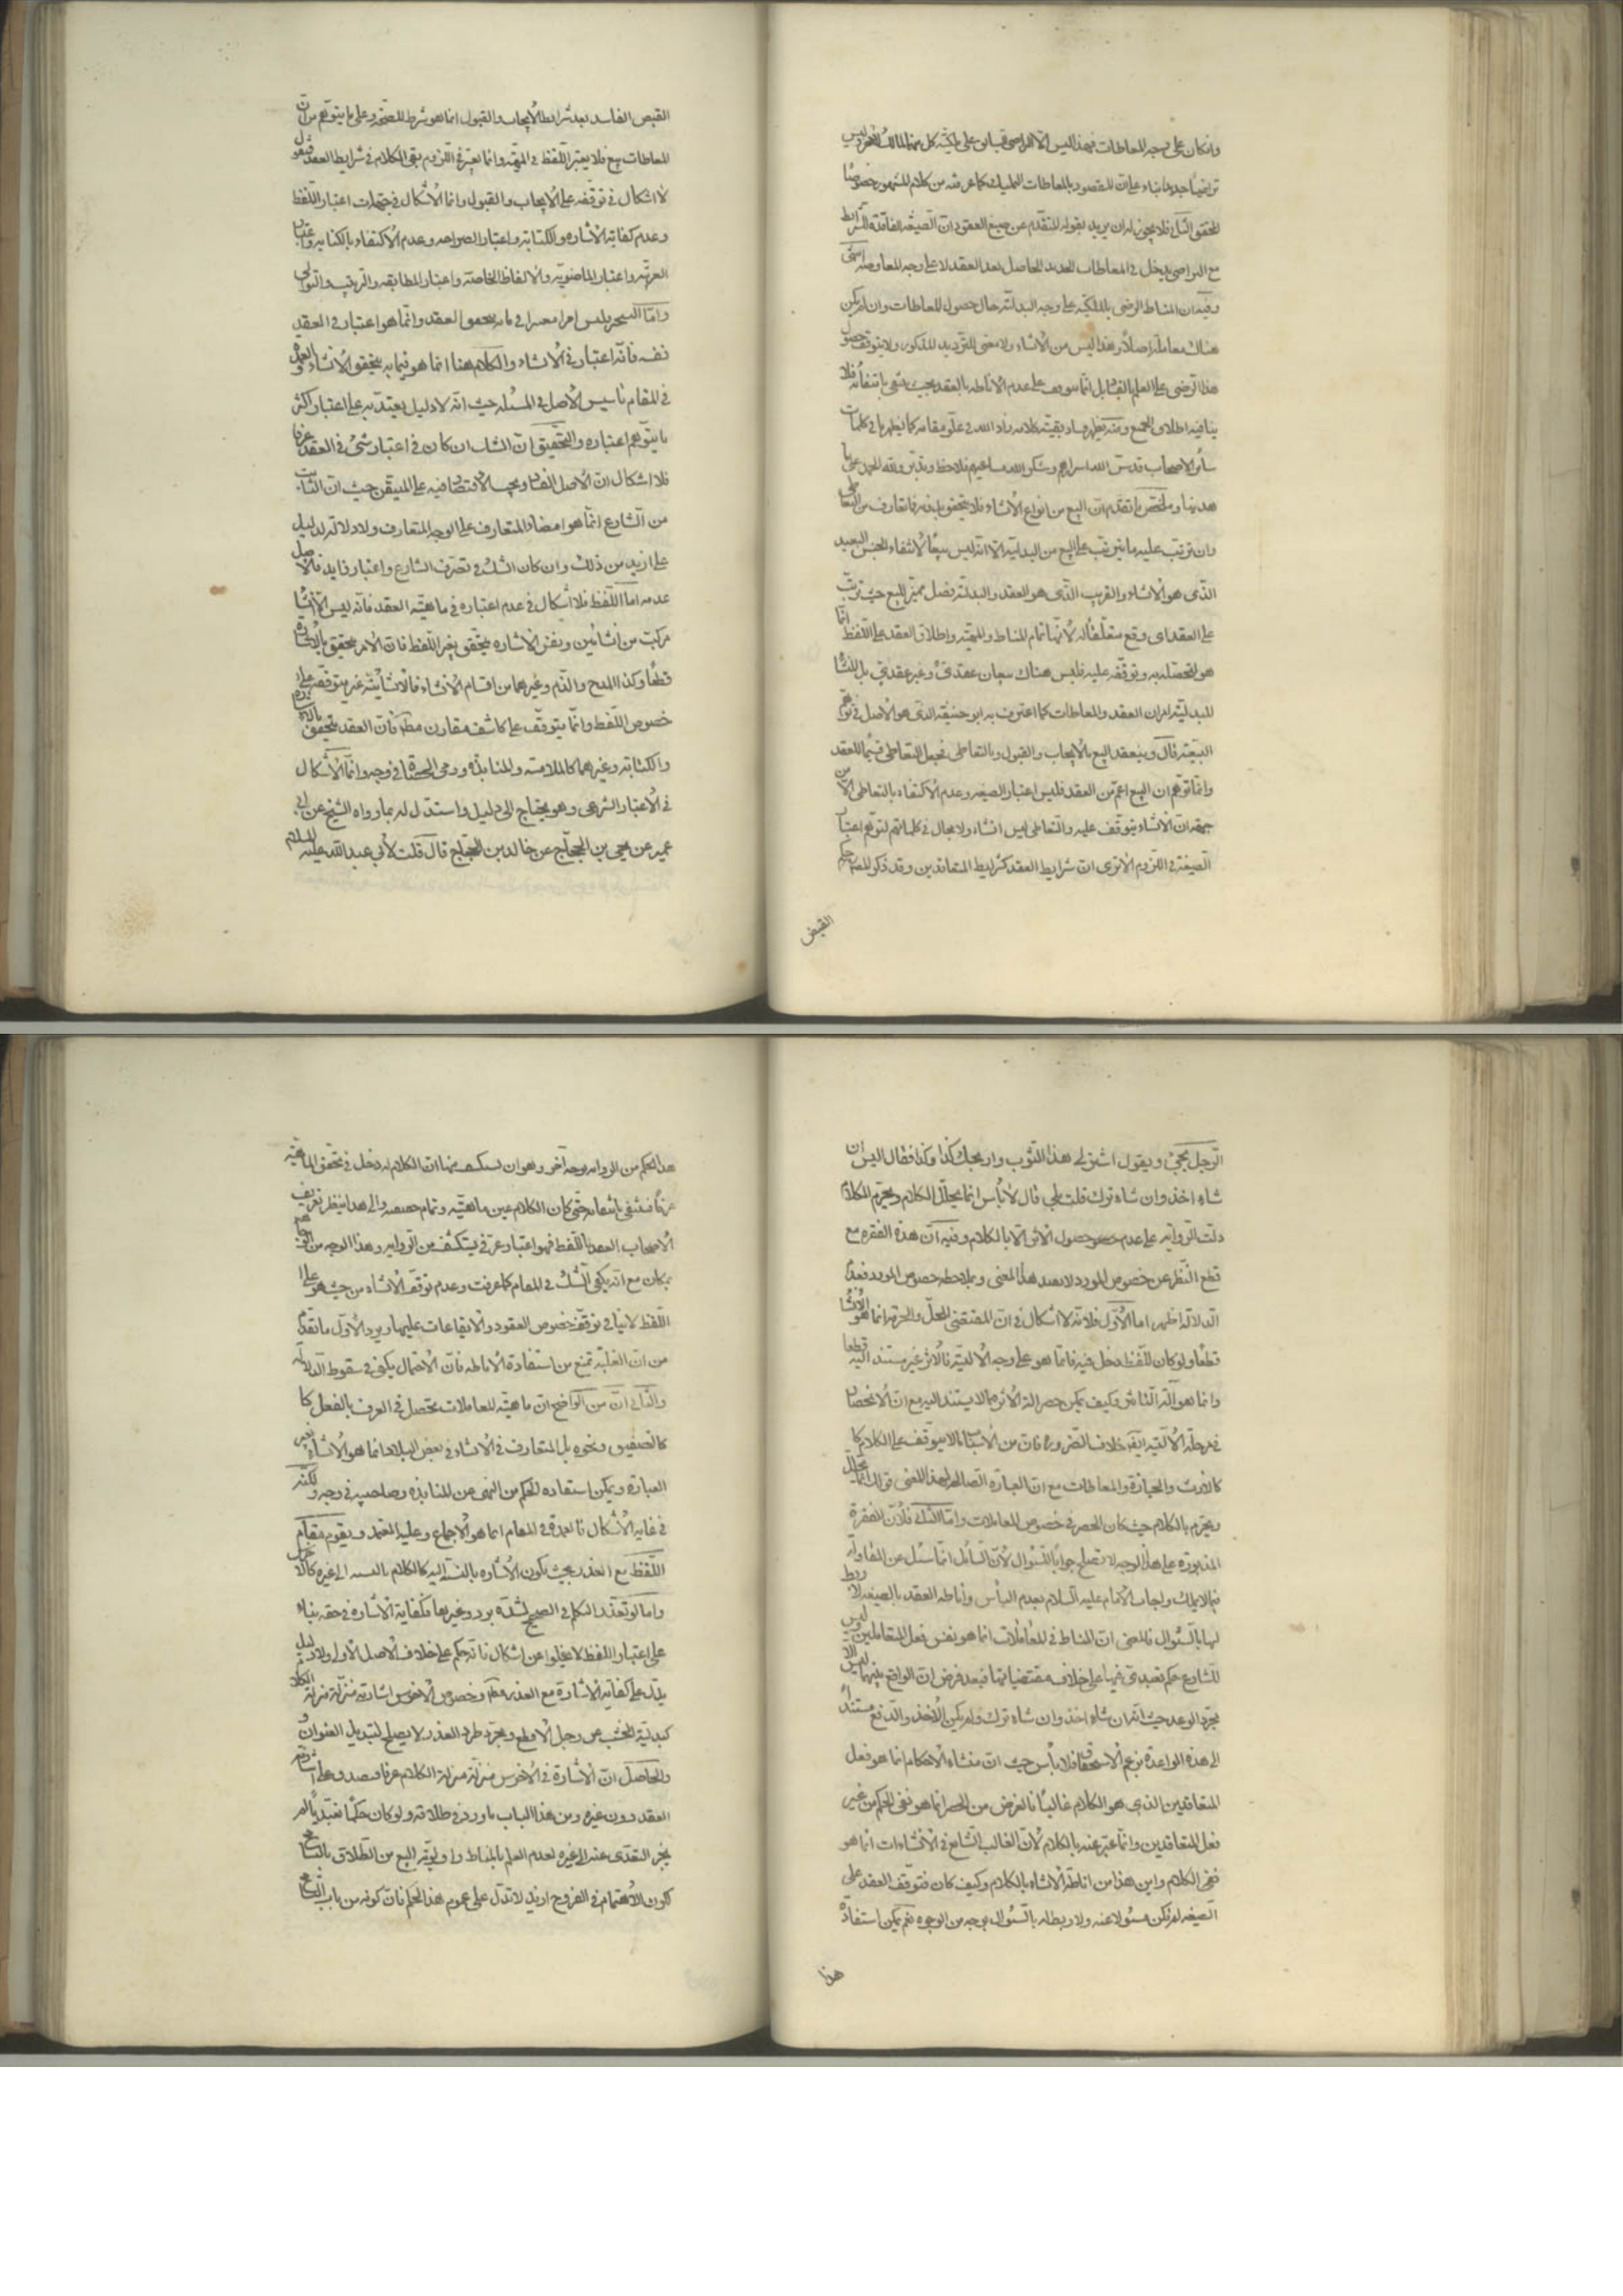 وانكان على وجه المعاطات فهذا ليس الا التراضي على ملكية كل منهما
تراضيا جديدا بناء على ان المقصود بالمعاطات التمليك كما عرفته من كلام المشهور خصوصا
المحقق الثاني فلا يجوز له ان يريد بقوله المتقدم عن صيغ العقود ان الصيغة الفاقدة للشرايط
مع التراضي يدخل في المعاطات الحاصل بعد العقد لا على وجه المعاوضة انتهى
وفيه ان المناط الرضى بالملكية على وجه البدلية حال حصول المعاطات وان لم يكن
هناك معاملة اصلا وهذا ليس من الانشاء ولا معنى للترديد المذكور ولا يتوقف حصول
هذا الرضى على العلم بل انما يتوقف على عدم الاناطة بالعقد بحيث ينتفي بانتفائه فلا
ينافيه اطلاق الجميع ومنه يظهر بقية كلامه زاد الله في علو مقامه كما يظهر ما في كلمات
سائر الاصحاب قدس الله اسرارهم وشكر الله مساعيهم فلاحظ وتدبر ولله الحمد على ما
هدينا وملخص ما تقدم ان البيع من انواع الانشاء فلا يتحقق بدونه فما تعارف من التعاطي
وان ترتب عليه ما يترتب على البيع من البدلية الا انه ليس بيعا لانتفاء الجنس البعيد
الذي هو الانشاء والقريب الذي هو العقد والبدلية فصل مميز للبيع حيث ترتب
على العقد اي وقع متعلقا له لانها تمام المناط والمهية واطلاق العقد على اللفظ انما
هو لتحصله به وتوقفه عليه فليس هناك بيعان عقدي وغير عقدي بل المنشأ
للبدلية امران العقد والمعاطات كما اعترف به ابو حنيفة الذي هو الاصل في توهم
البيعية قال وينعقد البيع بالايجاب والقبول وبالتعاطي فجعل التعاطي قسيما للعقد
وانما توهم ان البيع اعم من العقد فليس اعتبار الصيغة وعدم الاكتفاء بالتعاطي الا من
جهة ان الانشاء يتوقف عليه والتعاطي ليس انشاء ولا مجال في كلماتهم لتوهم اعتبار
الصيغة في اللزوم الا ترى ان شرايط العقد كشرايط المتعاقدين وقد ذكروا للمص حكم
القبض
القبض الفاسد بعد شرايط الايجاب والقبول انما هو شرط للصحة وعلى ما يتوهم من ان
المعاطات بيع فلا يعتبر اللفظ في المهية وانما يعتبر في اللزوم بقي الكلام في شرايط العقد فنقول
لا اشكال في توقفه على الايجاب والقبول وانما الاشكال في جهات اعتبار اللفظ
وعدم كفاية الاشارة والكتابة واعتبار الصراحة وعدم الاكتفاء بالكناية واعتبار
العربية واعتبار الماضوية والالفاظ الخاصة واعتبار المطابقة والترتيب والتوالي
واما التنجيز فليس امرا معتبرا في ما به يتحقق العقد وانما هو اعتبار في العقد
نفسه فانه اعتبار في الانشاء والكلام هنا انما هو فيما به يتحقق الانشاء والعمدة
في المقام تأسيس الاصل في المسئلة حيث انه لا دليل يعتد به على اعتبار اكثر
ما يتوهم اعتباره والتحقيق ان الشك ان كان في اعتبار شئ في العقد عرفا
فلا اشكال ان الاصل الفساد ويجب الاقتصار فيه على المتيقن حيث ان الثابت
من الشارع انما هو امضاء المتعارف على الوجه المتعارف ولا دلالة لدليل
على ازيد من ذلك وان كان الشك في تصرف الشارع واعتبار زايد فالاصل
عدمه اما اللفظ فلا اشكال في عدم اعتباره في ماهية العقد فانه ليس الا انشاء
مركبا من انشائين ونفس الانشاء يتحقق بغير اللفظ فان الامر يتحقق بالاشارة
قطعا وكذا المدح والذم وغيرهما من اقسام الانشاء فالانشائية غير متوقفة على
خصوص اللفظ وانما يتوقف على كاشف مقارن مظهر فان العقد يتحقق بالاشارة
والكتابة وغيرهما كالملامسة والمنابذة ورمي الحصاة في وجه وانما الاشكال
في الاعتبار الشرعي وهو يحتاج الى دليل واستدل له بما رواه الشيخ عن ابن ابي
عمير عن يحيى بن الحجاج عن خالد بن الحجاج قال قلت لابي عبد الله عليه السلام
الرجل يجئ ويقول اشتر لي هذا الثوب واربحك كذا وكذا فقال اليس ان
شاء اخذ وان شاء ترك قلت بلى قال لا بأس انما يحلل الكلام ويحرم الكلام
دلت الرواية على عدم حصول الاثر الا بالكلام وفيه ان هذه الفقرة مع
قطع النظر عن خصوص المورد لا يفيد هذا المعنى وبملاحظة خصوص المورد فعدم
الدلالة اظهر اما الاول فلانه لا اشكال في ان المقتضي للحل والحرمة انما هو الانشاء
قطعا ولو كان للفظ دخل فيه فانما هو على وجه الالية فالاثر غير مستند اليه قطعا
وانما هو آلة التأثير فكيف يمكن حصر الة الاثر مما لا يستند اليه مع ان الانحصار
في مرحلة الالية ايضا خلاف الضرورة فان من الاسباب ما لا يتوقف على الكلام كا
كالارث والحيازة والمعاطات مع ان العبارة الصالحة لهذا المعنى قولنا انما يحلل
ويحرم بالكلام حيث كان الحصر في خصوص المعاملات واما الثاني فلان الفقرة
المذبورة على هذا الوجه لا تصلح جوابا للسؤال لان السائل انما سئل عن المقاولة
فيما لا يملك واجاب الامام عليه السلام بعدم البأس واناطة العقد بالصيغة لا ربط
لها بالسؤال فالمعنى ان المناط في المعاملات انما هو نفس فعل المتعاملين وليس
للشارع حكم تعبدي فيها على خلاف مقتضياتها فبعد فرض ان الواقع بينهما ليس الا
مجرد الوعد حيث انه ان شاء اخذ وان شاء ترك ولم يكن الاخذ والدفع مستندا
الى هذه المواعدة بزعم الاستحقاق فلا بأس حيث ان منشاء الاحكام انما هو فعل
المتعاقدين الذي هو الكلام غالبا فالغرض من الحصر انما هو نفي الحكم من غير
فعل المتعاقدين وانما عبر عنه بالكلام لان الغالب الشايع في الانشاءات انما هو
ففي الكلام واين هذا من اناطة الانشاء بالكلام وكيف كان فتوقف العقد على
الصيغة لم تكن مسئولا عنه ولا ربط له بالسؤال بوجه من الوجوه نعم يمكن استفادة
هذا
هذا الحكم من الرواية بوجه آخر وهو ان يستكشف منها ان الكلام له دخل في تحقق الماهية
عرفا فينتفي بانتفائه حتى كان الكلام عين ماهيته وتمام حقيقته والى هذا ينظر تعريف
الاصحاب العقد باللفظ فهو اعتبار عرفي يستكشف من الرواية وهذا الوجه من
بمكان مع انه يكفي الشك في المقام كما عرفت وعدم توقف الانشاء من حيث هو على
اللفظ لا ينافي توقف خصوص العقود والايقاعات عليها ويرد الاول ما تقدم
من ان الغلبة تمنع من استفادة الاناطة فان الاحتمال يكفي في سقوط الدلالة
والثاني ان من الواضح ان ماهية المعاملات يتحصل في العرف بالفعل كا
كالتصفيق ونحوه بل المتعارف في الانشاء في بعض البلاد انما هو الانشاء بغير
العبارة ويمكن استفادة الحكم من النهى عن المنابذة وصاحبيه في وجه ولكنه
في غاية الاشكال فالعمدة في المقام انما هو الاجماع وعليه المعتمد ويقوم مقام
اللفظ مع العذر بحيث يكون الاشارة بالنسبة اليه كالكلام بالنسبة الى غيره كالاخرس
واما لو تعذر التكلم في الصحيح لشدة برد وغيرها فكفاية الاشارة في حقه بناء
على اعتبار اللفظ لا يخلوا عن اشكال فانه حكم على خلاف الاصل الاولي ولا دليل
يدل على كفاية الاشارة مع العذر وخصوص الاخرس اشارته منزلة منزلة الكلام
كبدلية الخشب عن رجل الاقطع ومجرد طرد العذر لا يصلح لتبديل العنوان
والحاصل ان الاشارة في الاخرس منزلة منزلة الكلام عرفا فيصدق على اشارته
العقد دون غيره ومن هذا الباب ما ورد في طلاقه ولو كان حكما تعبديا لم
يجز التعدي عنه الى غيره لعدم العلم بالمناط واولوية البيع من الطلاق بالتسامح
لكون الاهتمام في الفروج ازيد لا تدل على عموم هذا الحكم فان كونه من باب التسامح